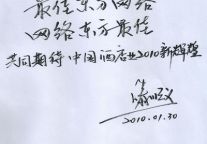 最佳东方网络
网络东方最佳
共同期待中国酒店业2010新辉煌
2010.01.30